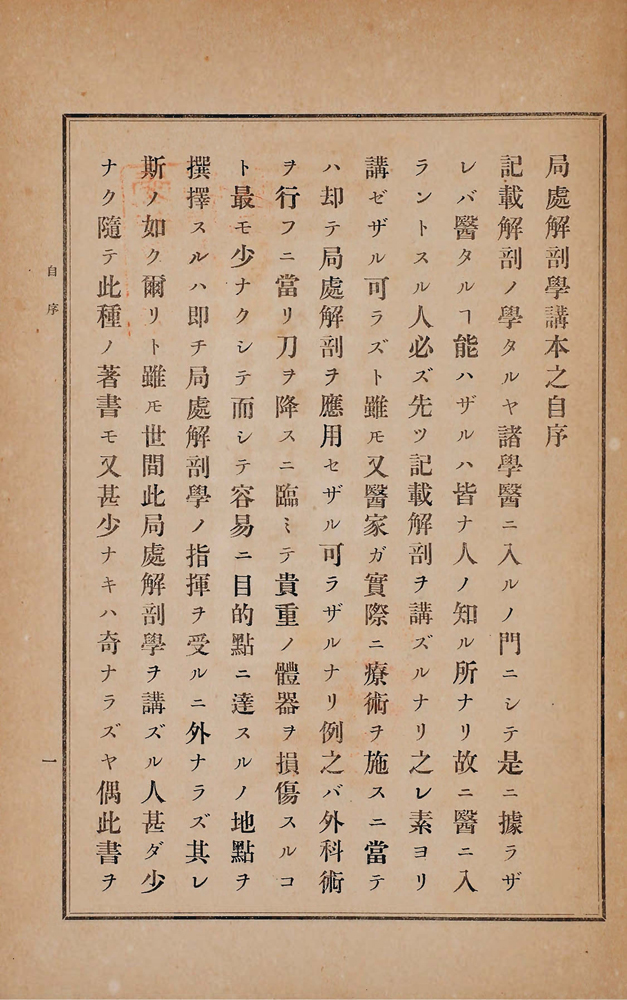 局處解剖學講本之自序
記載解剖ノ學タルヤ諸學醫ニ入ルノ門ニシテ是ニ據ラザ
レバ醫タルヿ能ハザルハ皆ナ人ノ知ル所ナリ故ニ醫ニ入
ラントスル人必ズ先ツ記載解剖ヲ講ズルナリ之レ素ヨリ
講ゼザル可ラズト雖𪜈又醫家ガ實際ニ療術ヲ施スニ當テ
ハ却テ局處解剖ヲ應用セザル可ラザルナリ例之バ外科術
ヲ行フニ當リ刀ヲ降スニ臨ミテ貴重ノ體器ヲ損傷スルコ
ト最モ少ナクシテ而シテ容易ニ目的點ニ達スルノ地點ヲ
撰擇スルハ即チ局處解剖學ノ指揮ヲ受ルニ外ナラズ其レ
斯ノ如ク爾リト雖𪜈世間此局處解剖學ヲ講ズル人甚ダ少
ナク隨テ此種ノ著書モ又甚少ナキハ奇ナラズヤ偶此書ヲ
自序
一